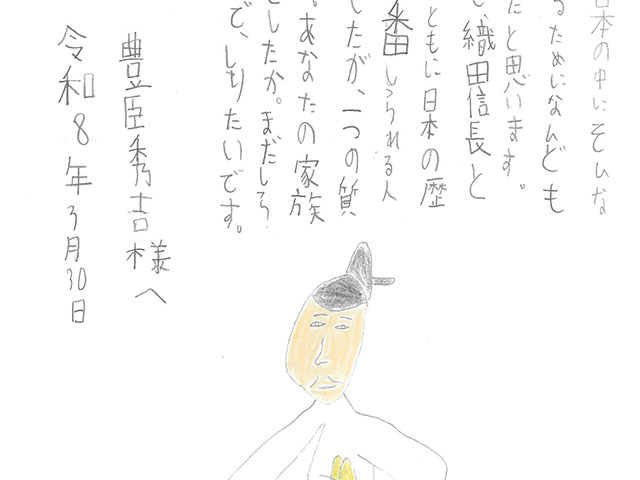 本の中にそんな
るためになんども
たと思います。
織田信長と
ともに日本の歴
番しられる人
したが、一つの質
。あなたの家族
としたか。まだしら
で、しりたいです。
豊臣秀吉様へ
令和8年3月30日